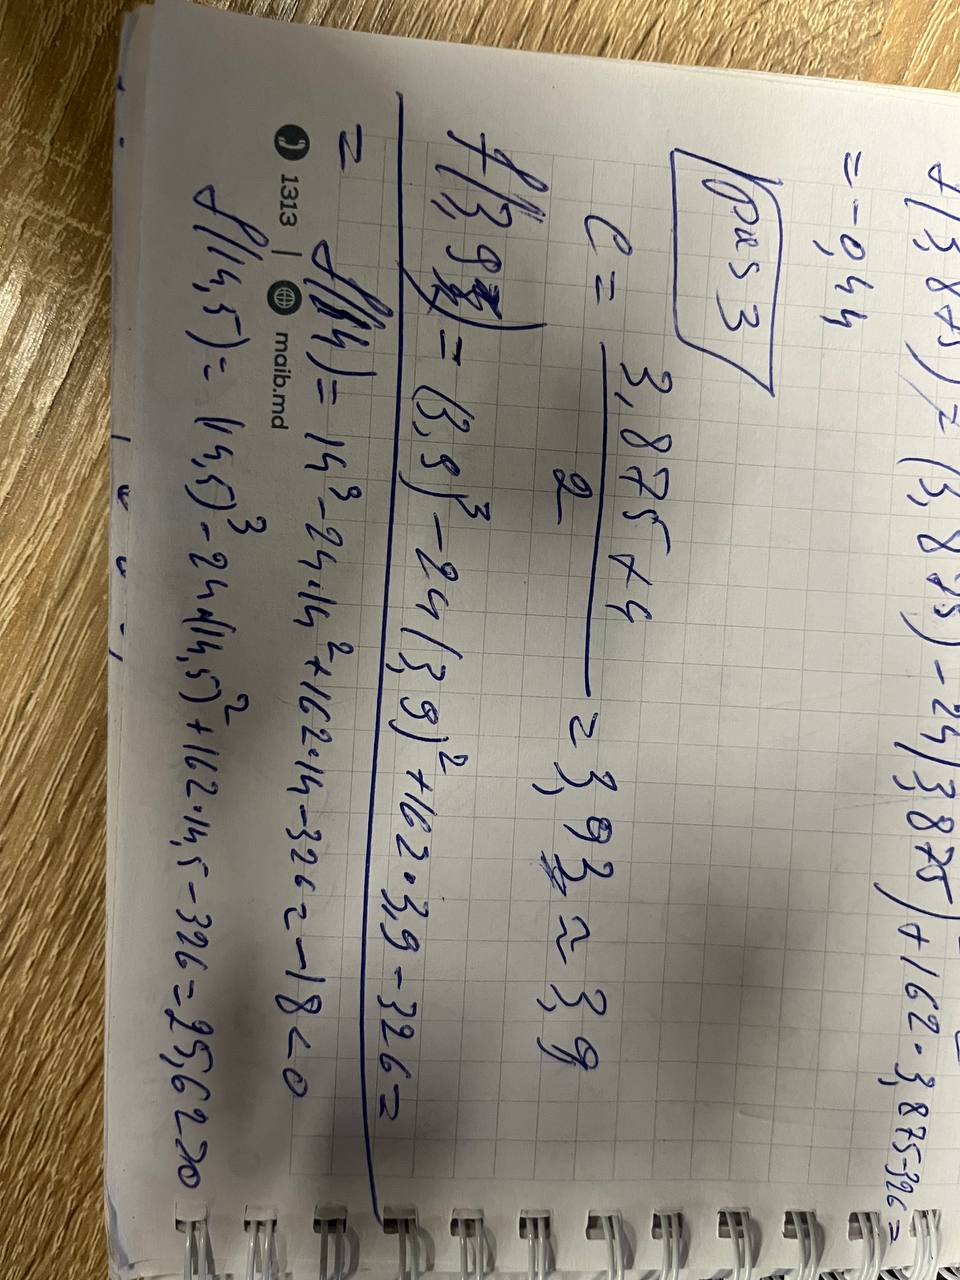 f(3,875) = (3,875) - 24(3,875) + 162·3,875-326 =
= -0,44
pas 3
C = 3,875 + 4
2
= 3,93 ≈ 3,9
f(3,9) = (3,9)³ - 24(3,9)² + 162·3,9 - 326 =
=
f(14) = 14³ - 24·14² + 162·14 - 326 = -18 < 0
1313 | maib.md
f(14,5) = (14,5)³ - 24·(14,5)² + 162·14,5 - 326 = 25,62 > 0